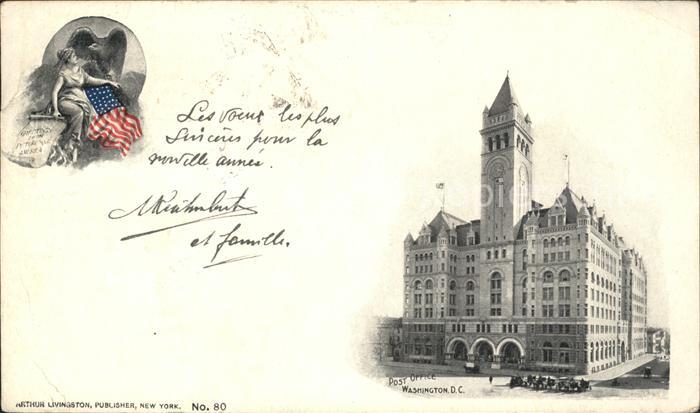 GREETINGS
FROM
PICTURESQUE
AMERICA
Les voeux les plus
sincères pour la
nouvelle année.
et famille.
POST OFFICE
WASHINGTON, D.C.
ARTHUR LIVINGSTON, PUBLISHER, NEW YORK. No. 80